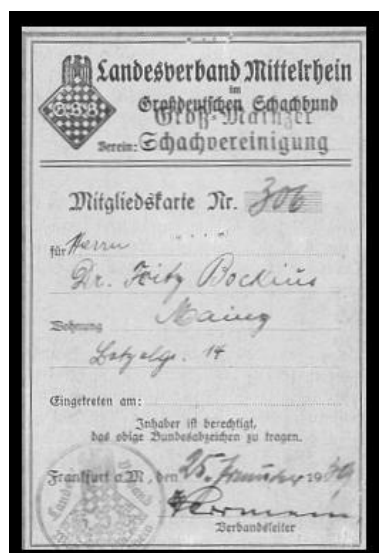 Landesverband Mittelrhein
im
Großdeutschen Schachbund
Groß-Mainzer
Verein: Schachvereinigung
G·S·B
Mitgliedskarte Nr. 306
für Herrn
Dr. Fritz Bockius
Wohnung Mainz
14
Eingetreten am:
Inhaber ist berechtigt,
das obige Bundesabzeichen zu tragen.
Frankfurt a.M., den 25. 1939
Verbandsleiter